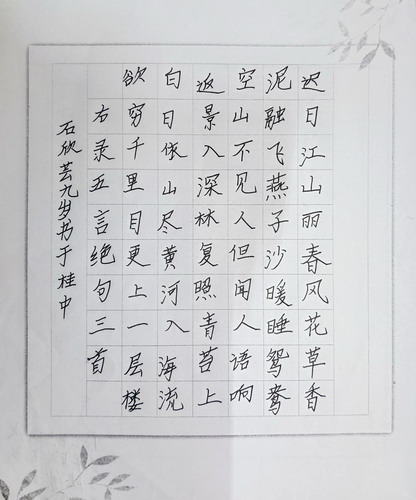 迟日江山丽春风花草香
泥融飞燕子沙暖睡鸳鸯
空山不见人但闻人语响
返景入深林复照青苔上
白日依山尽黄河入海流
欲穷千里目更上一层楼
右录五言绝句三首
石欣芸九岁书于桂中